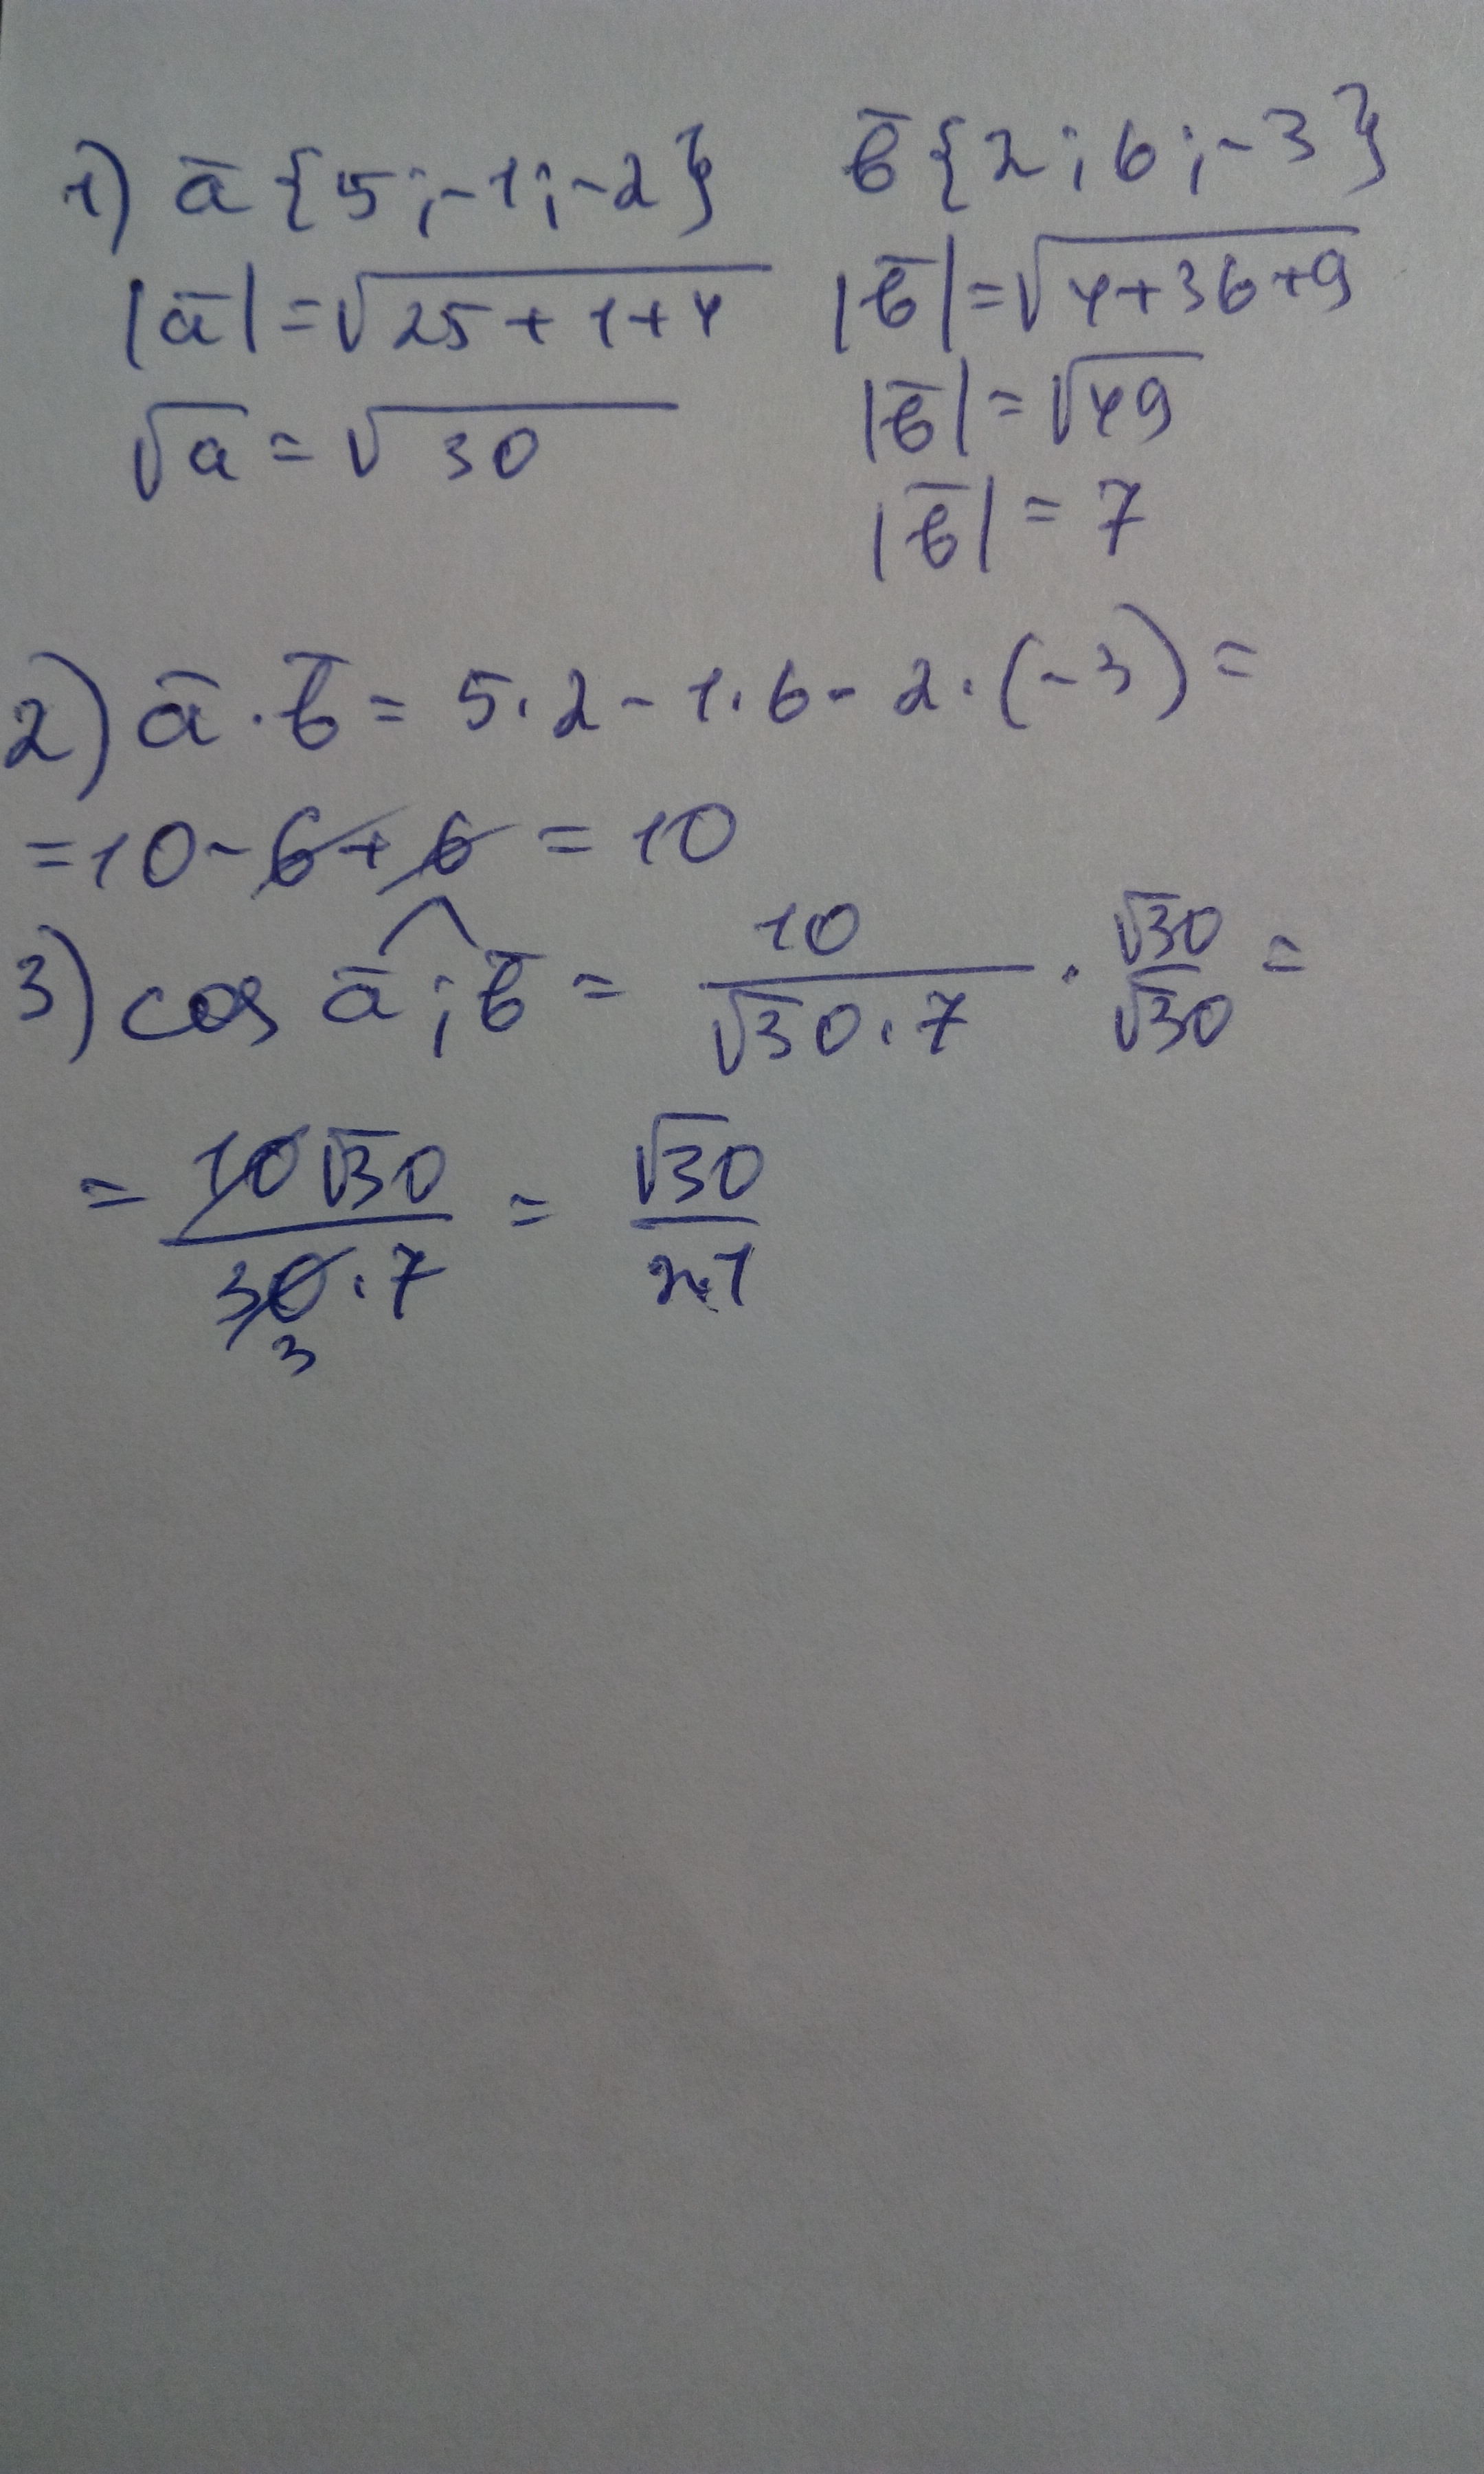 1) a̅ {5;-1;-2} b̅ {2;6;-3}
|a̅| = √25+1+4 |b̅| = √4+36+9
√a = √30 |b̅| = √49
|b̅| = 7
2) a̅ · b̅ = 5·2-1·6-2·(-3) =
= 10-6+6 = 10
3) cos a̅;b̅ = 10/(√30·7) · √30/√30 =
= 10√30/(30·7) = √30/21
3